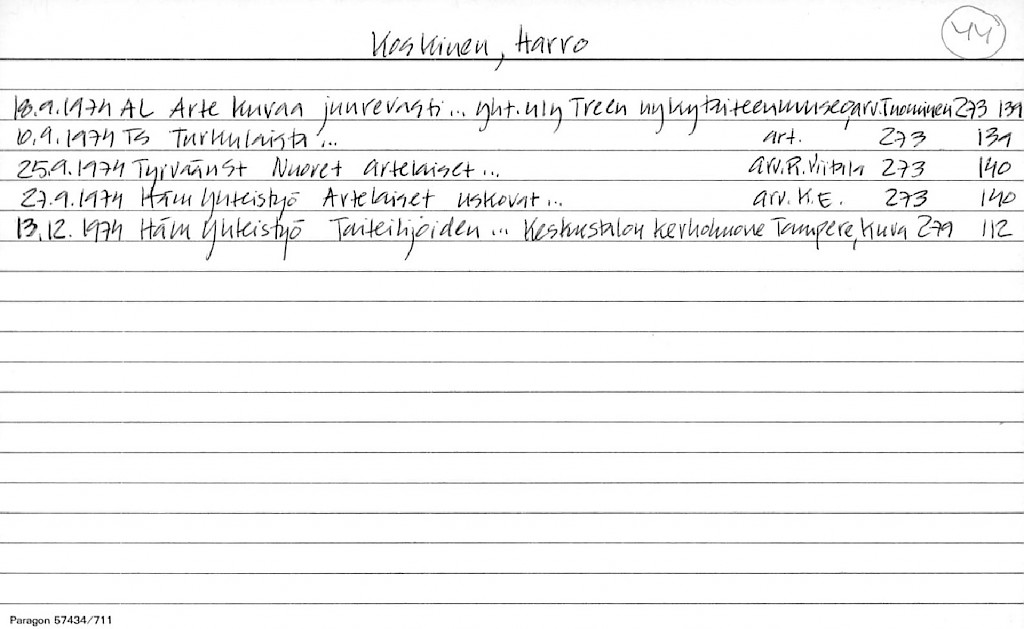 44
Koskinen, Harro
18.9.1974 AL Arte kuvaa juurevasti... yht.nly Treen nykytaiteenmuseo arv.Tuominen 273 139
10.9.1974 TS Turkulaista... art. 273 139
25.9.1974 TyrväänSt Nuoret artelaiset... arv.R.Viitala 273 140
27.9.1974 Häm Yhteistyö Artelaiset uskovat... arv. K.E. 273 140
13.12.1974 Häm Yhteistyö Taiteilijoiden... Keskustalon kerhohuone Tampere, kuva 279 112
Paragon 57434/711